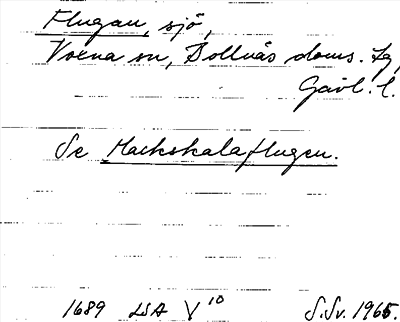 Flugan, sjö,
Voxna sn, Bollnäs doms. tg,
Gävl. l.
Se Mackskalaflugen.
1689 LSA V 10 S. Sv. 1965.